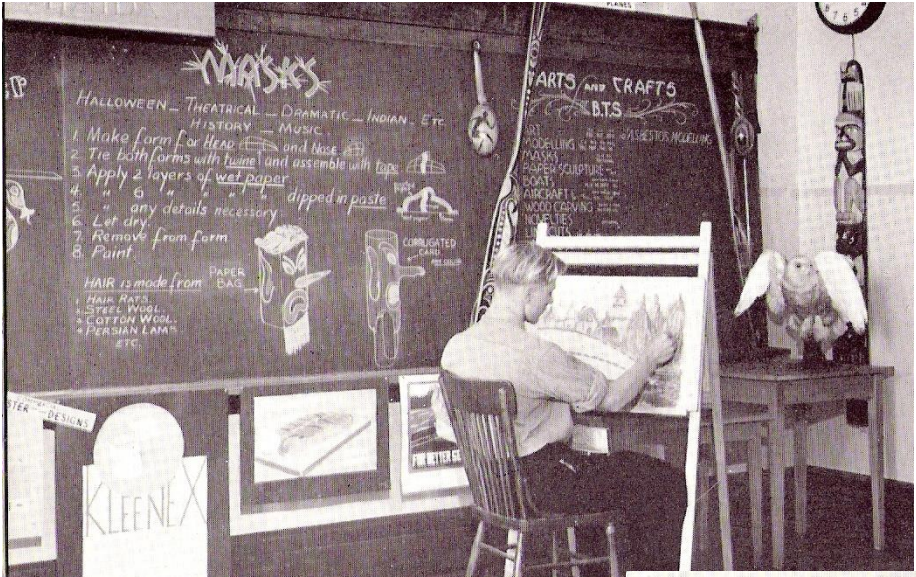 MASKS
HALLOWEEN - THEATRICAL - DRAMATIC - INDIAN. ETC
HISTORY - MUSIC.
1. Make form for HEAD and NOSE
2. Tie both forms with twine and assemble with tape
3. Apply 2 layers of wet paper
4. " 6 " " " dipped in paste
5. " any details necessary
6. Let dry
7. Remove from form
8. Paint
PAPER BAG
CORRUGATED CARD
HAIR is made from
1. HAIR RATS
2. STEEL WOOL
3. COTTON WOOL.
4. PERSIAN LAMB
ETC.
ARTS AND CRAFTS
B.T.S
ART
MODELLING
MASKS
PAPER SCULPTURE
BOATS
AIRCRAFT
WOOD CARVING
NOVELTIES
ASBESTOS MODELLING
PLANES
DESIGNS
KLEENEX
FOR BETTER
8 7 6 5